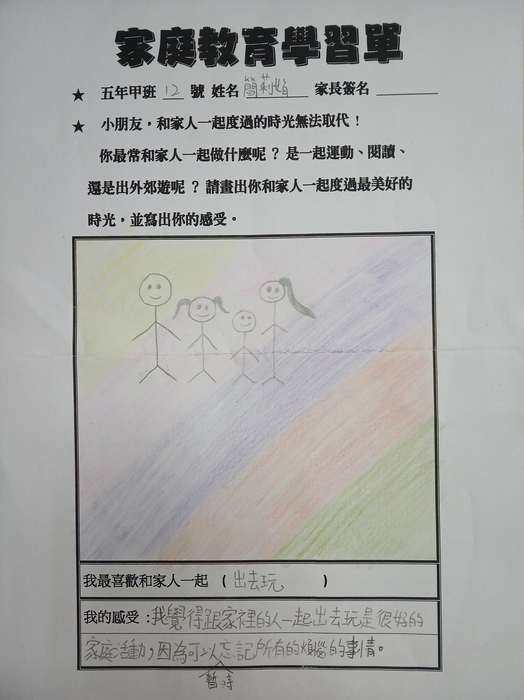 家庭教育學習單
★ 五年甲班 12 號 姓名 簡莉娟 家長簽名
★ 小朋友，和家人一起度過的時光無法取代！
你最常和家人一起做什麼呢？是一起運動、閱讀、
還是出外郊遊呢？請畫出你和家人一起度過最美好的
時光，並寫出你的感受。
我最喜歡和家人一起 （ 出去玩 ）
我的感受：我覺得跟家裡的人一起出去玩是很好的
家庭活動，因為可以忘記所有的煩惱的事情。
暫時